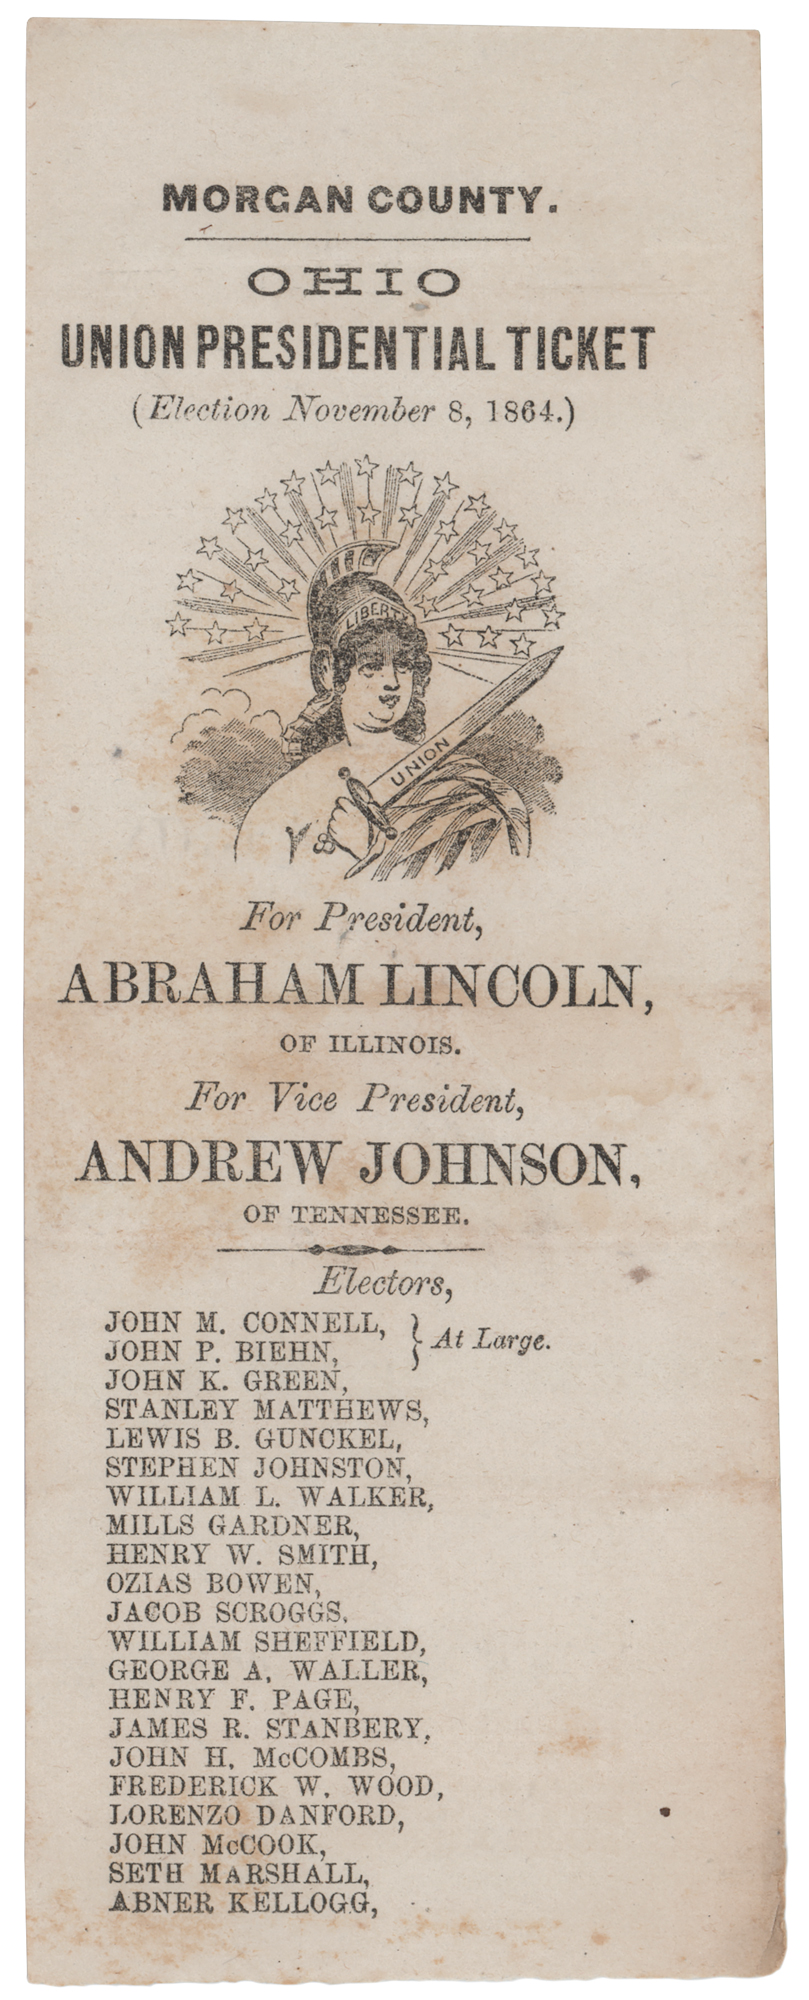 MORGAN COUNTY.
OHIO
UNION PRESIDENTIAL TICKET
(Election November 8, 1864.)
LIBERTY
UNION
For President,
ABRAHAM LINCOLN,
OF ILLINOIS.
For Vice President,
ANDREW JOHNSON,
OF TENNESSEE.
Electors,
JOHN M. CONNELL,
JOHN P. BIEHN,
} At Large.
JOHN K. GREEN,
STANLEY MATTHEWS,
LEWIS B. GUNCKEL,
STEPHEN JOHNSTON,
WILLIAM L. WALKER,
MILLS GARDNER,
HENRY W. SMITH,
OZIAS BOWEN,
JACOB SCROGGS.
WILLIAM SHEFFIELD,
GEORGE A. WALLER,
HENRY F. PAGE,
JAMES R. STANBERY.
JOHN H. McCOMBS,
FREDERICK W. WOOD,
LORENZO DANFORD,
JOHN McCOOK,
SETH MARSHALL,
ABNER KELLOGG,